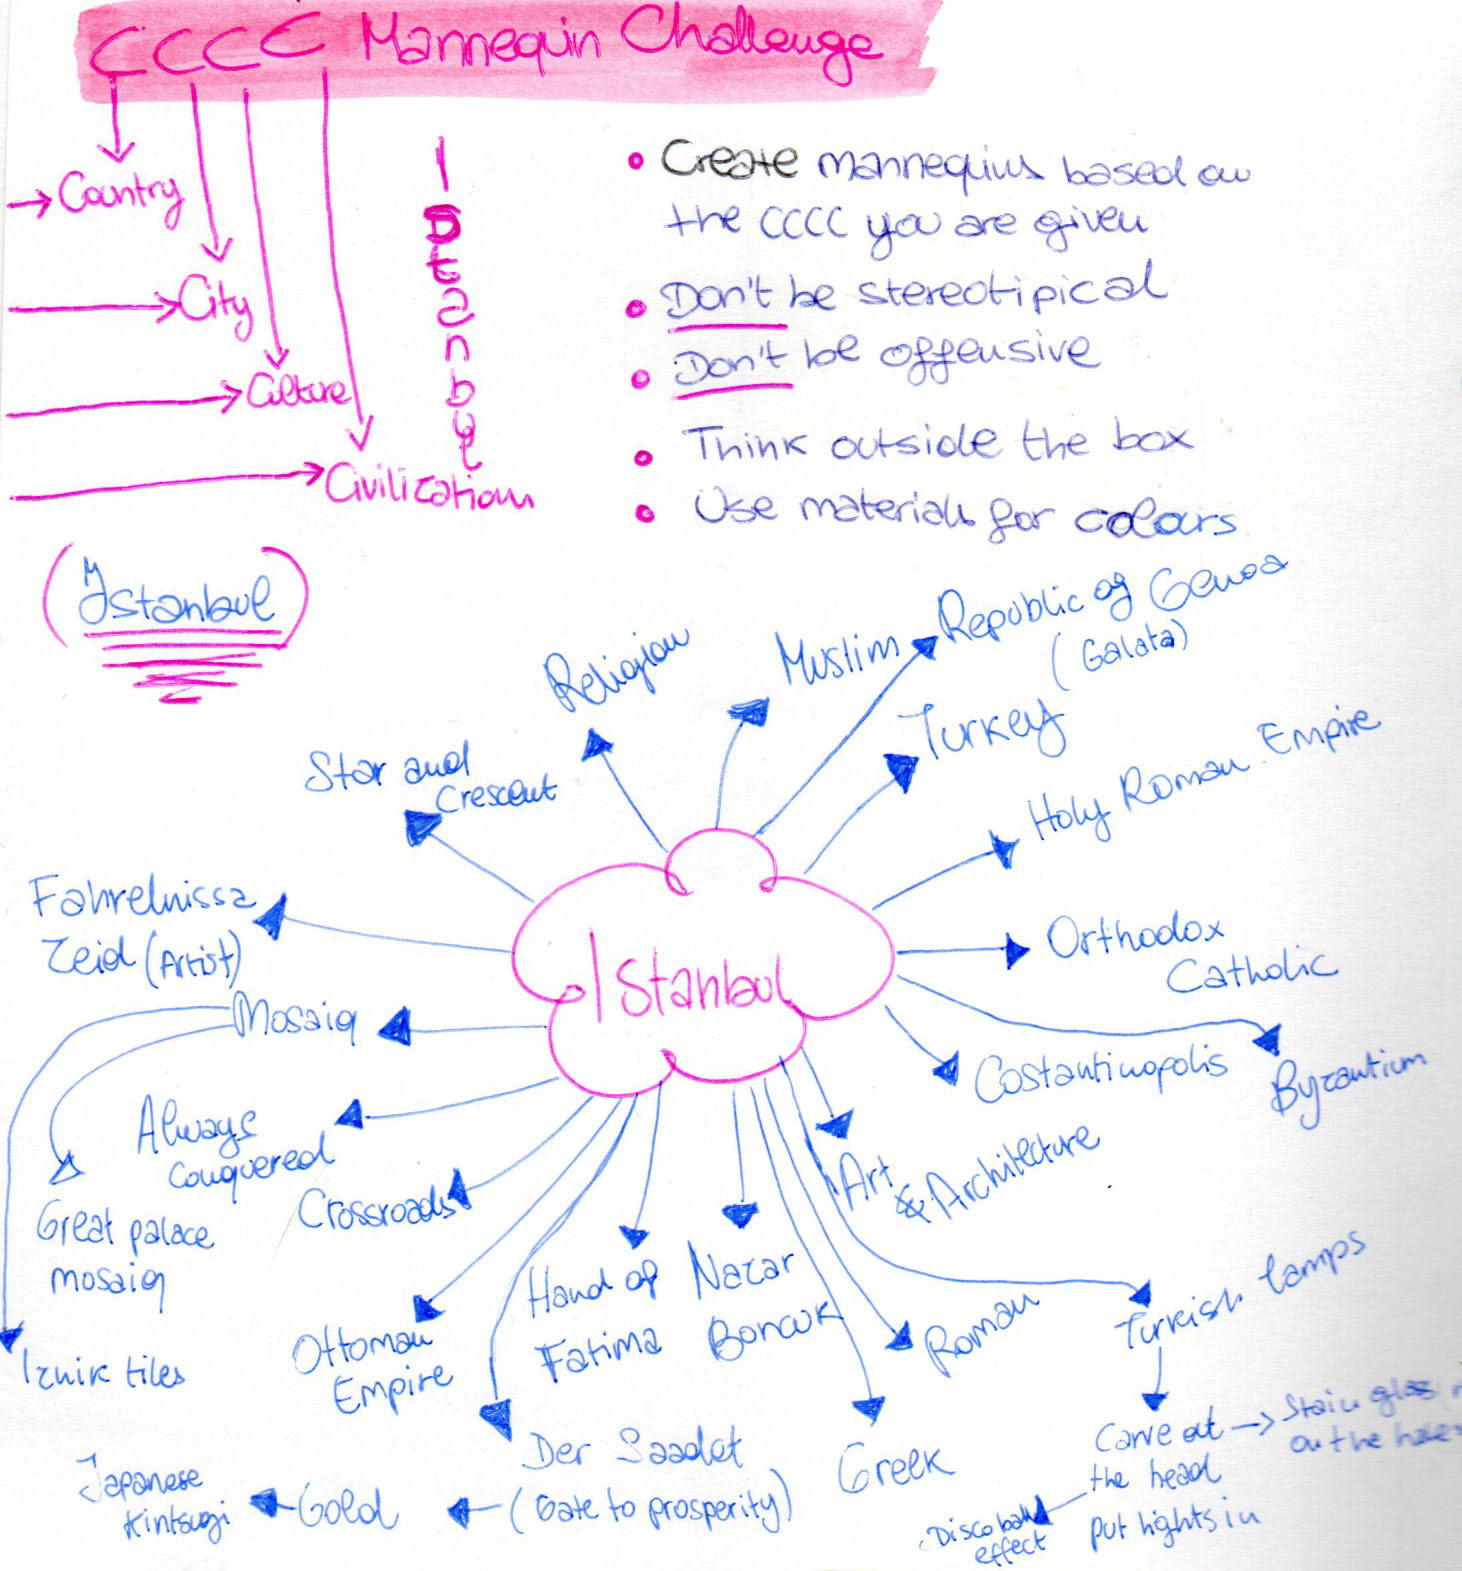 CCCC Mannequin Challenge
Country
City
Culture
Civilization
Istanbul
• Create mannequins based on
the CCCC you are given
• Don't be stereotipical
• Don't be offensive
• Think outside the box
• Use materials for colours
(Istanbul)
Religion
Muslim
Republic of Genoa
(Galata)
Turkey
Star and
Crescent
Holy Roman Empire
Fahrelnissa
Zeid (Artist)
Istanbul
Orthodox
Catholic
Mosaiq
Costantinopolis
Byzantium
Always
Conquered
Art
& Architecture
Great palace
mosaiq
Crossroads
Hand of
Fatima
Nazar
Boncuk
Turkish lamps
Roman
Iznik tiles
Ottoman
Empire
Der Saadet
(Gate to prosperity)
Greek
Carve out
the head
put lights in
Stain glass
on the
Japanese
Kintsugi
Gold
Disco ball
effect